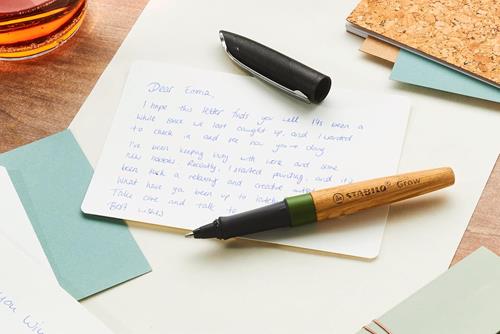 Dear Emma,
I hope this letter finds you well. It's been a
while since we last caught up, and I wanted
to check in and see how you're doing.
I've been keeping busy with work and some
new hobbies. Recently, I started painting, and it's
been such a relaxing and creative
What have you been up to lately
Take care and talk to
Best wishes
STABILO Grow
you